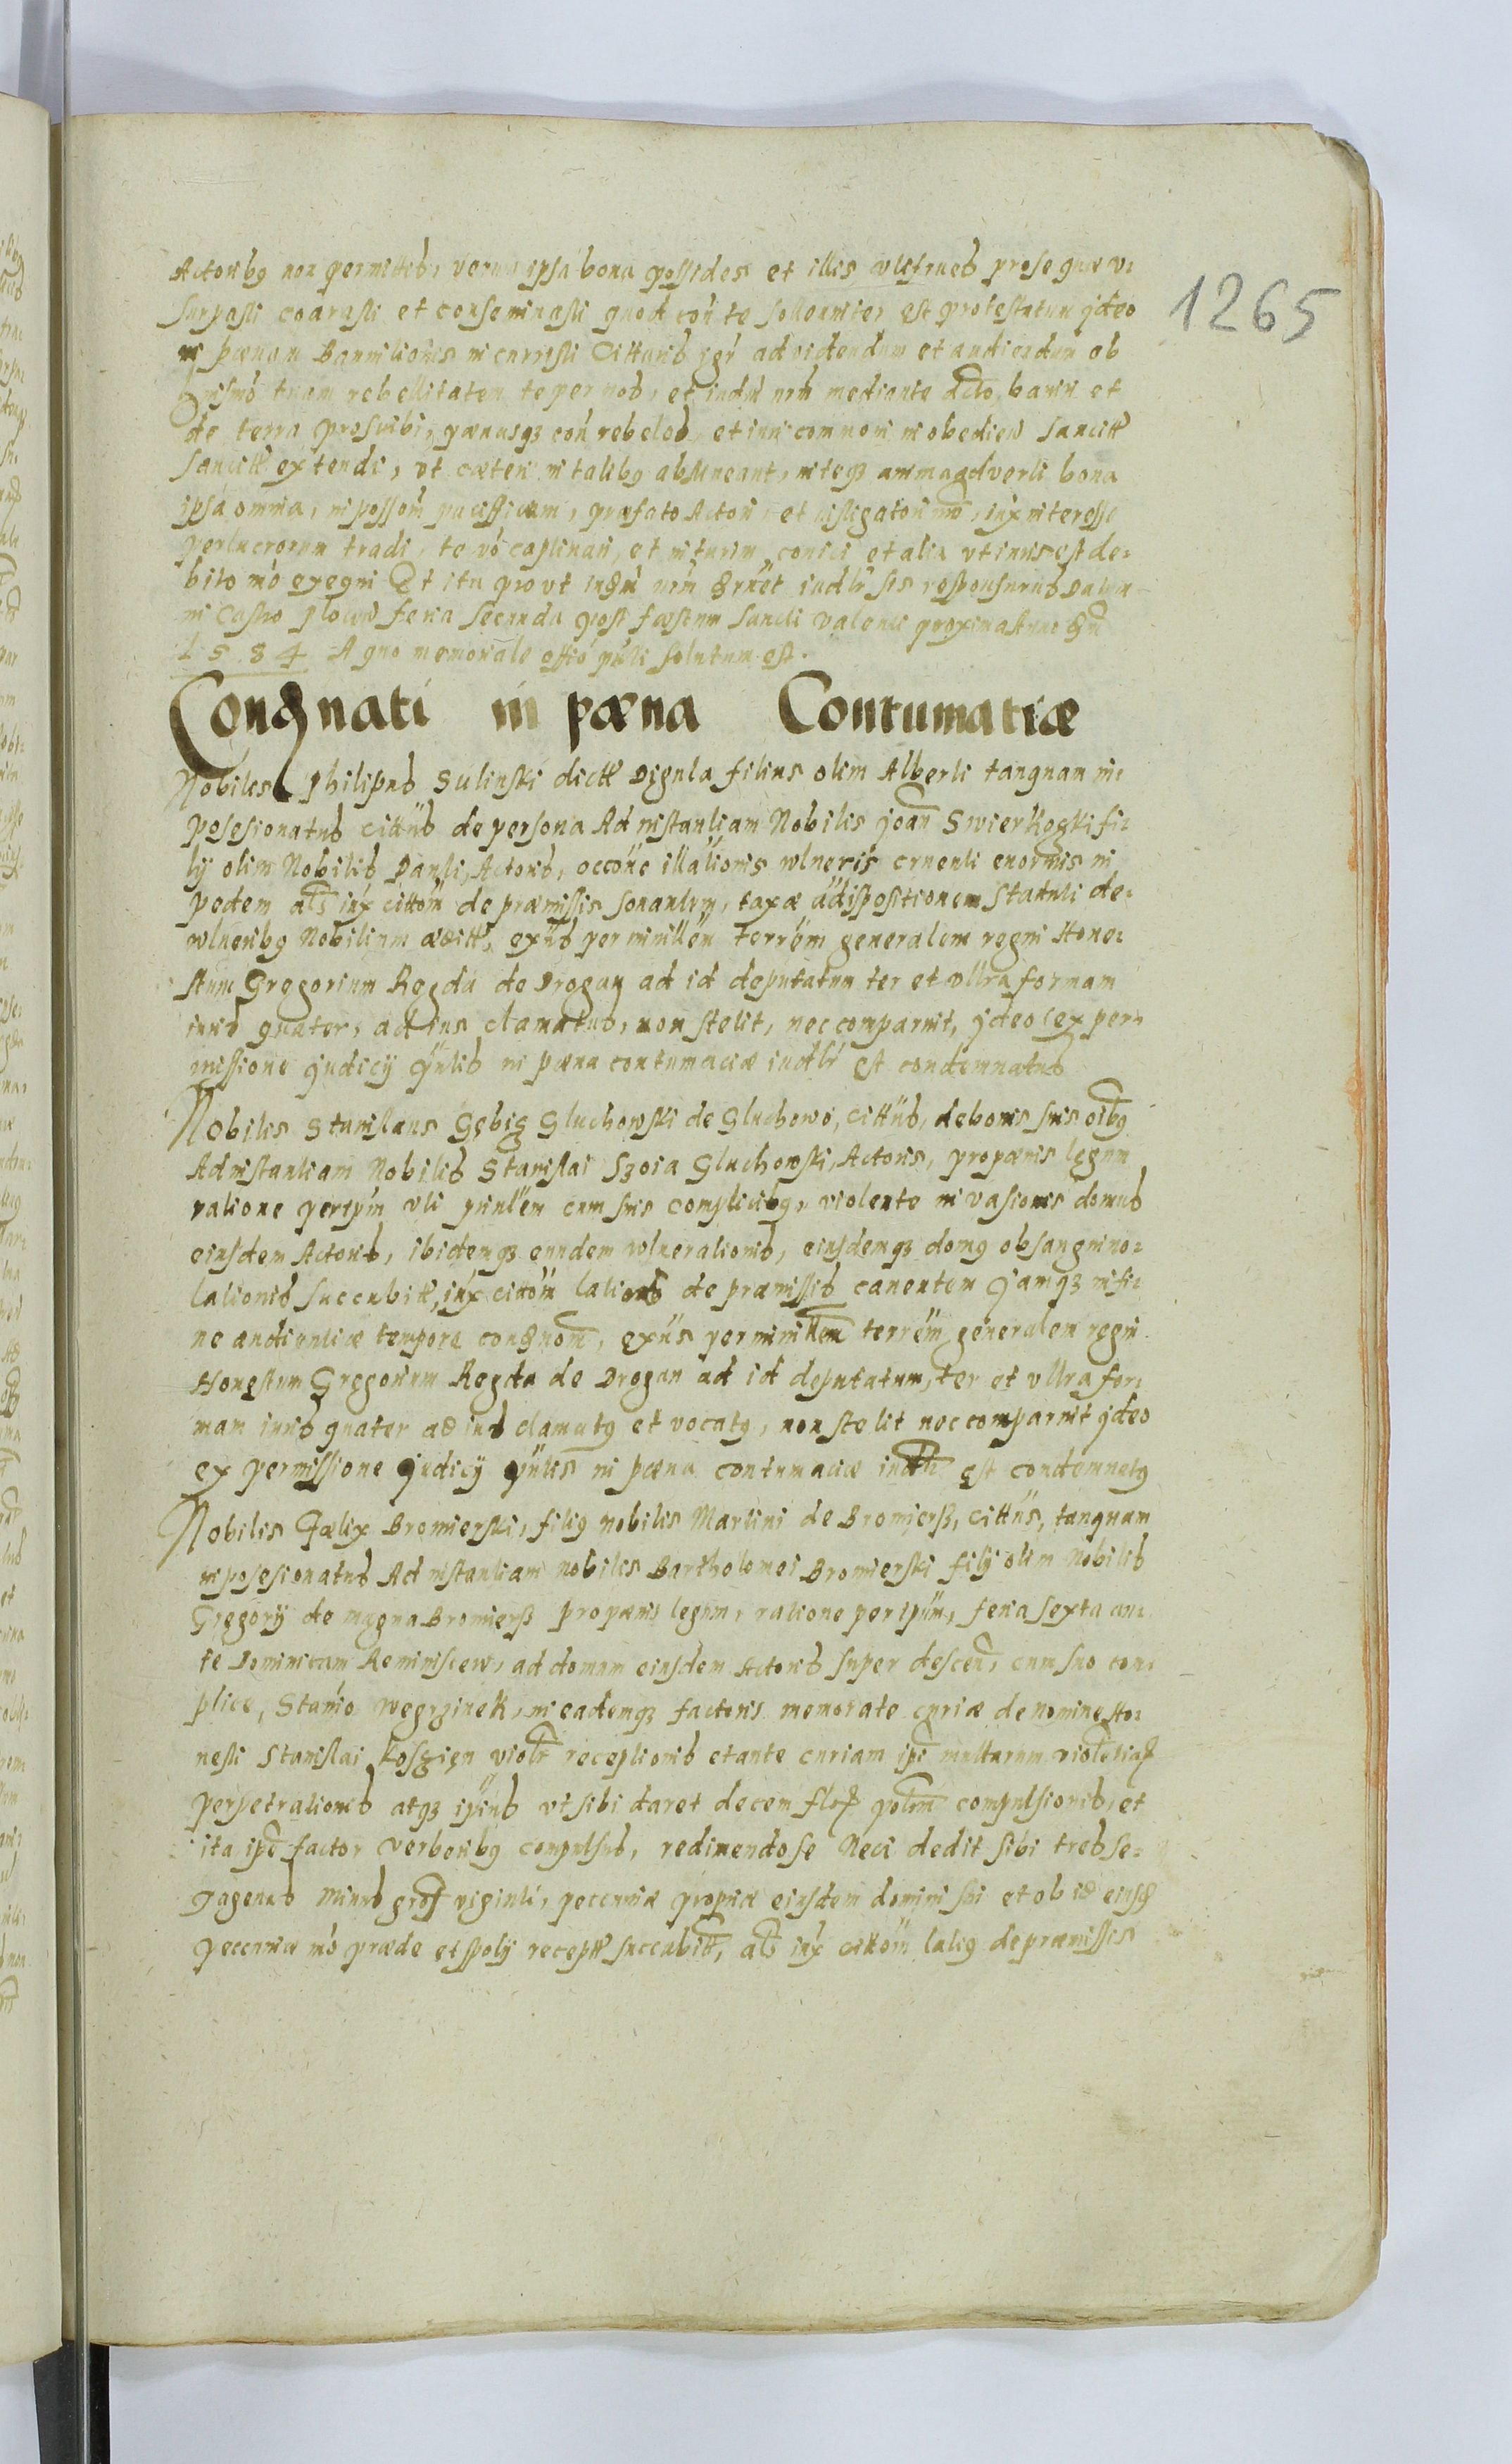 1265
Actoribq non permittis, verum ipsa bona possides et illis vtifrueris prose quæ v:
surpasti coarasti et conseminasti quod con te sollenniter est protestatum jdeo
in pænam Bannitionis incurristi Cittaris igr ad videndum et audiendum ob
tuam rebellitatem te per nos, et iudm nrm mediante dcto, bannri et
de terra proscribi, pænasqз con rebeles et iuri communi inobedien sancitt
sancitt extendi, vt cæteri in talibq abstineant, inteqз animaqdverti bona
ipsa omnia, in possom pacifficam, præfato Actori et instigatori nro, iux interesse
perlucrorum tradi, te vo captivari, et in turim conici et alia vt iuris est de:
bito mo exequi Et ita provt indm nrm dtuet iudlr sis responsurus Datum
in Castro plocen feria secunda post fæstum sancti valenti proxima Anno Dni
1584 A quo memoriale offio puli solutum est.
Condnati in pæna Contumatiæ
Nobiles Philipus Sulinski dictt Dzgula filius olim Alberti tanquam im:
posesionatus cittus de persona Ad instantiam Nobilis joan Swierkoczki fi:
lij olim Nobilis Pauli, Actoris, occone illationis wlneris cruenti enormis in
pedem als iux cittom de præmissis sonantem, taxæ addispositionem Statuti de:
wlneribq Nobilium æditt, exus per ministlem terrem generalem regni Hone:
stum Gregorium Regda de Drogan ad id deputatum ter et vltra formam
iuris quater, ad ius clamatus, non stetit, nec comparuit, jdeo ex per:
missione judicij pntis in pæna contumaciæ iudlr est condemnatus
Nobilis Stanislaus Gębis Gluchowski de Gluchowo, cittus, de bonis suis oibq
Ad instantiam Nobilis Stanislai Szoia Gluchowski, Actoris, propænis legum
ratione peripm vti pinlem cum suis complicibq, violente invasionis domus
eiusdem Actoris, ibidemqз eundem wlnerationis, eiusdemqз domq obsanguino:
lationis succubitt, iux cittom latiorẽ de præmissis canentem Jamqз in fi:
ne audientiæ tempore condnom, exus per ministlem terrem generalem regni
Honestum Gregorium Regda de Drogan ad id deputatum, ter et vltra for:
mam iuris quater ad ius clamatq et vocatq, non stetit nec comparuit jdeo
ex permissione judicij pntis in pæna contumaciæ iudlr est condemnatq
Nobilis Fælix Bromierski, filiq nobilis Martini de Bromierz, cittus, tanquam
inposesionatus Ad instantiam nobiles Bartholomei Bromierski filij olim Nobilis
Gregorij de magna Bromierz propænis legum, ratione peripm, feria sexta an:
te Dominicam Reminiscere, ad domum eiusdem Actoris super descen, cum suo con:
plice, Stanio wegrzinek, in eademqз factoris memorate curiæ de nomine Ho:
nesti Stanislai Koszien violr receptionis et ante curiam ipi multarum violetiaꝝ
perpetrationis atqз ipius vt sibi daret decem floꝝ polm compulsionis, et
ita ipe factor verberibq compulsus, redimendo se Neci dedit sibi tres se:
xagenas minus groꝝ viginti, pecuniæ propriæ eiusdem domini sui et ob id eiusd
pecuniæ mo præde et spolij receptt succubitt, als iux cittom latiq de præmissis